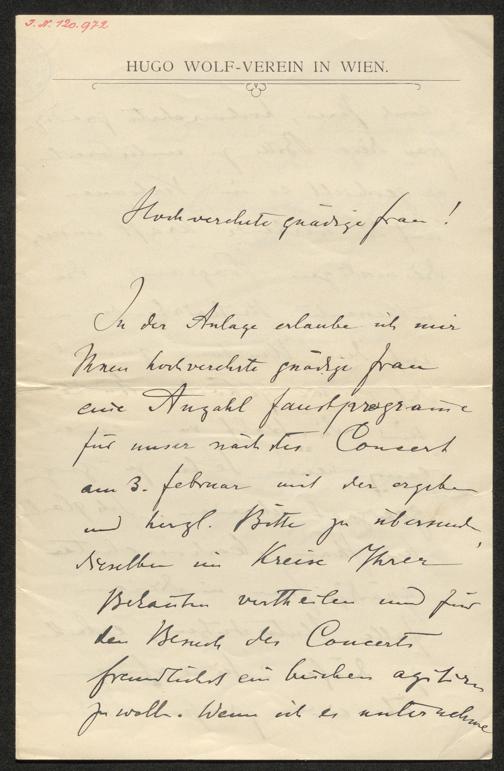 I.N. 120.972
HUGO WOLF-VEREIN IN WIEN.
Hochverehrte gnädige Frau!
In der Anlage erlaube ich mir
Ihnen hochverehrte gnädige Frau
eine Anzahl Faustprograme
für unser nächstes Concert
am 3. Februar mit der ergeben
und herzl. Bitte zu übersend
dieselben im Kreise Ihrer
Bekannten vertheilen und für
den Besuch des Concerts
freundlichst ein bischen agitiren
zu woll. Wenn ich es unternehme